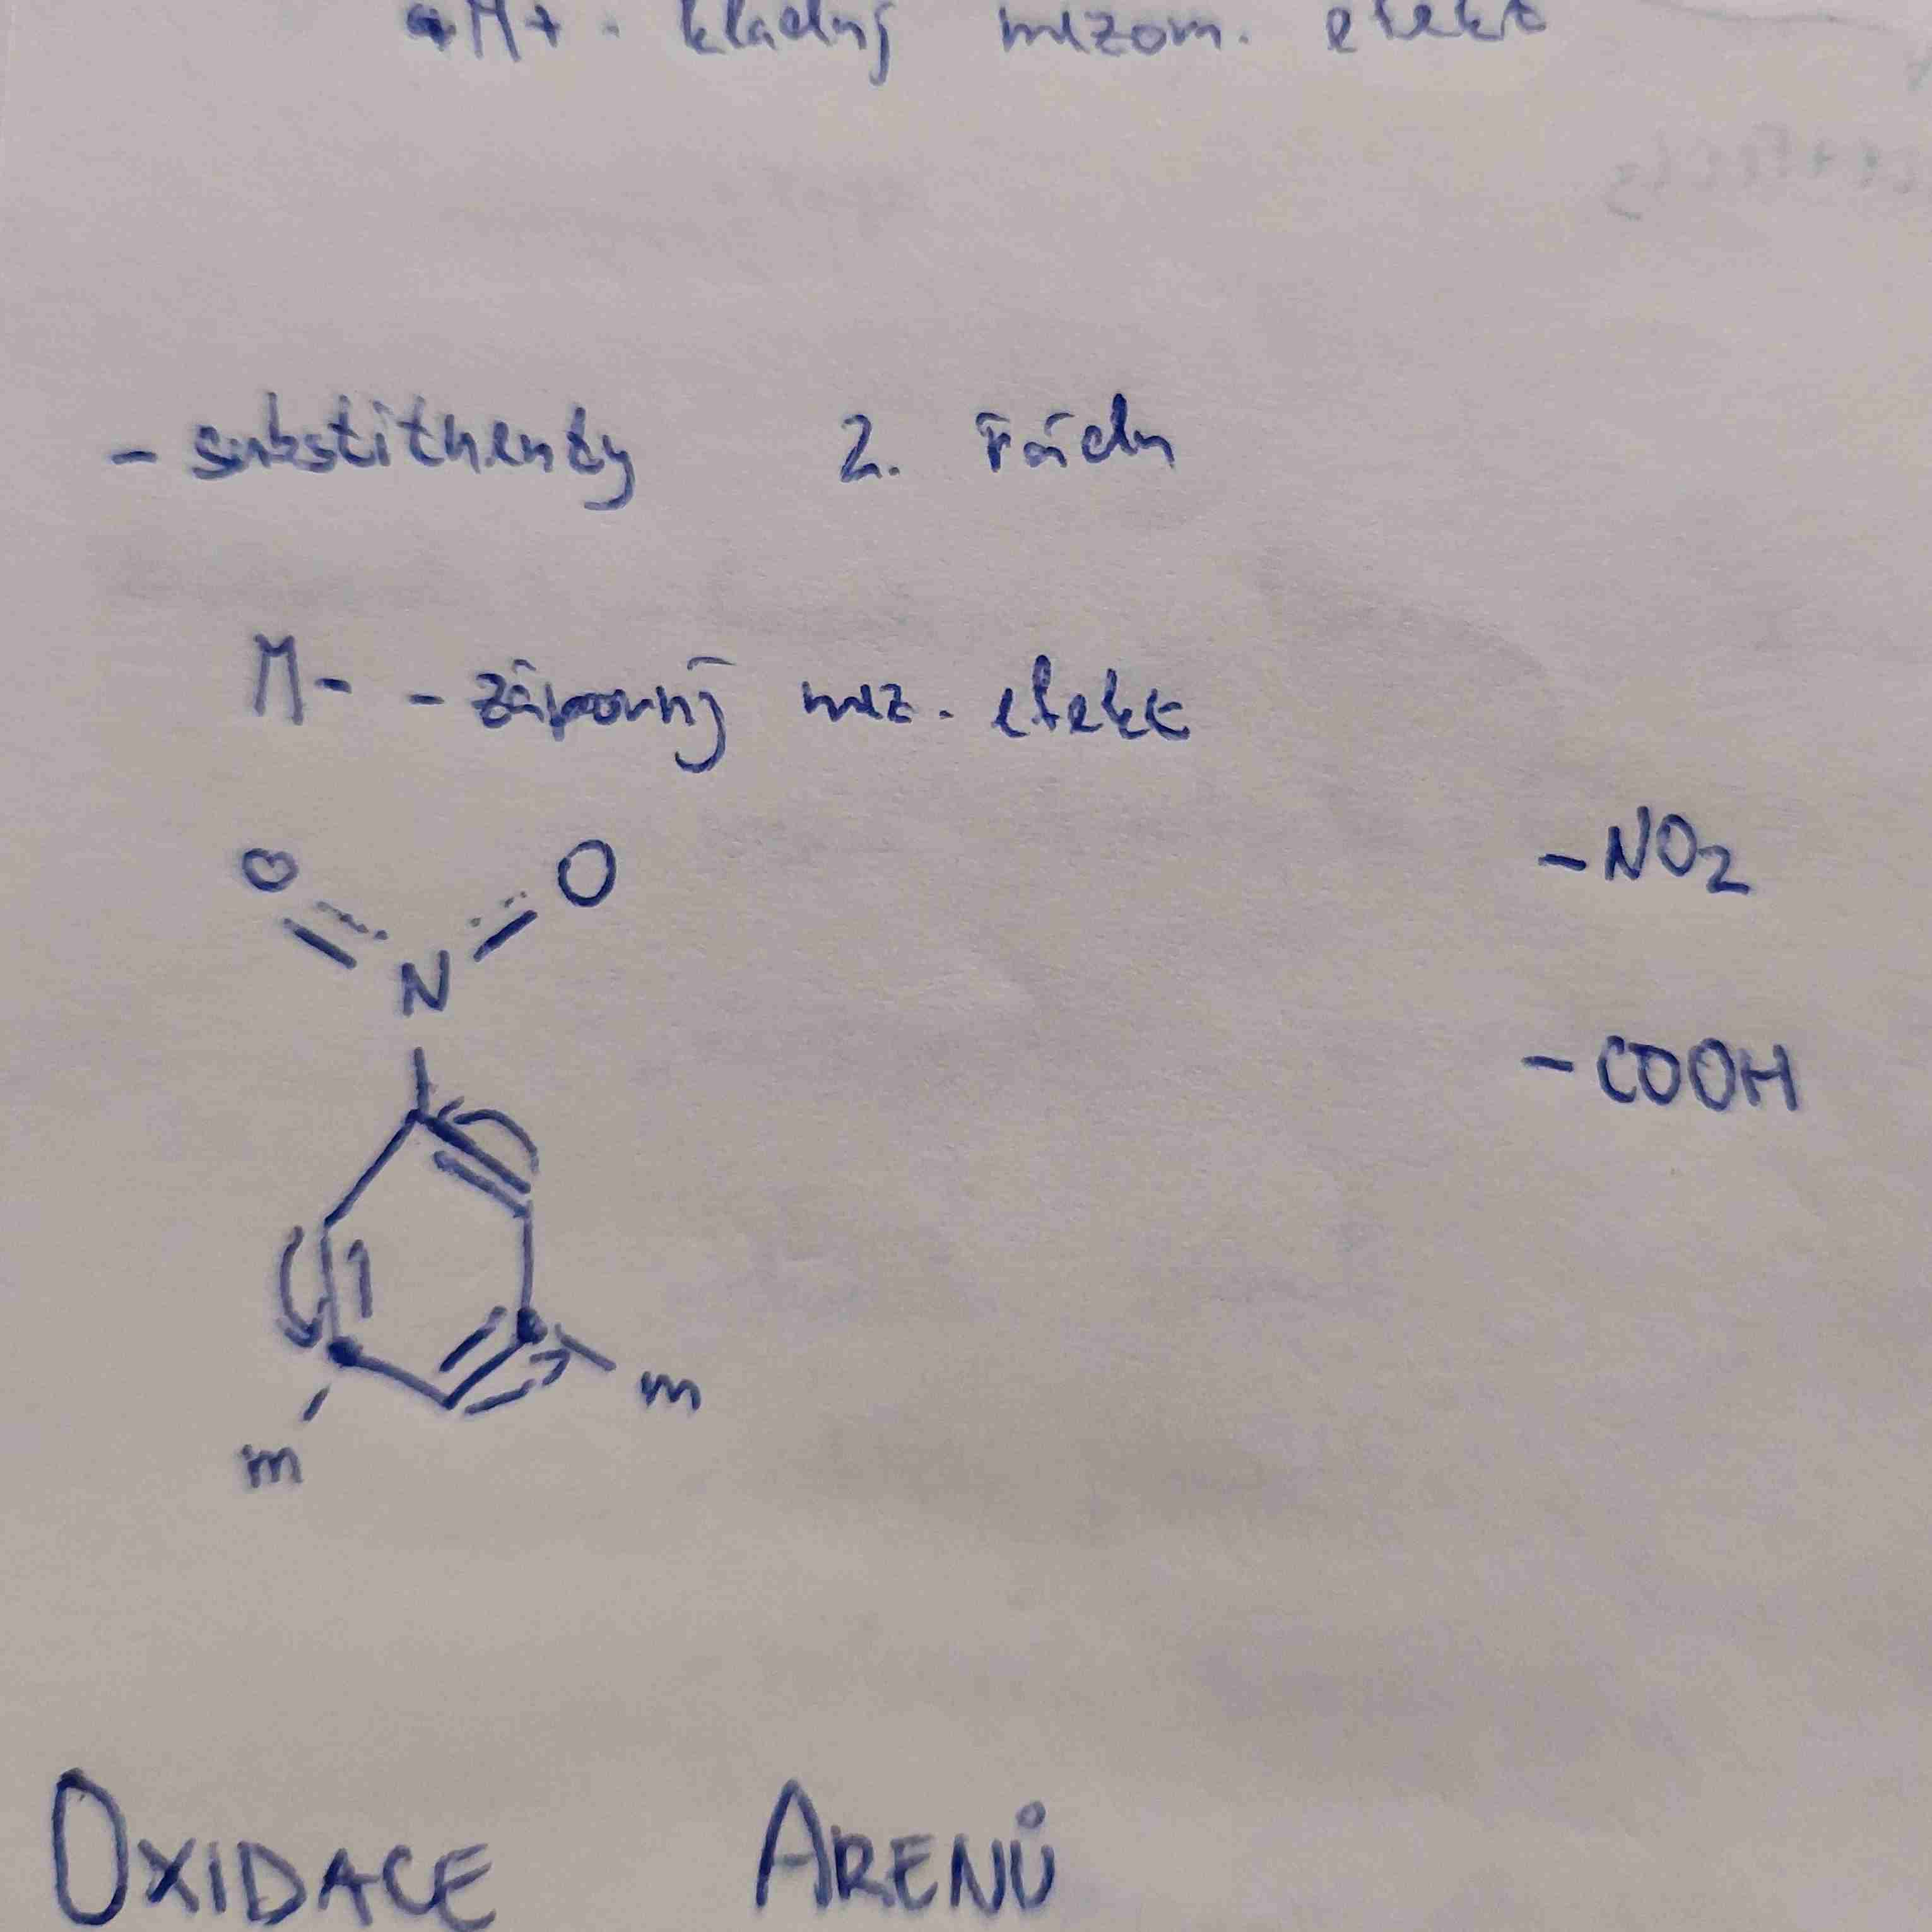 M+ - kladný mezom. efekt
- substituenty 2. řádu
M- - záporný mez. efekt
O O
N
- NO2
- COOH
m
m
OXIDACE ARENŮ